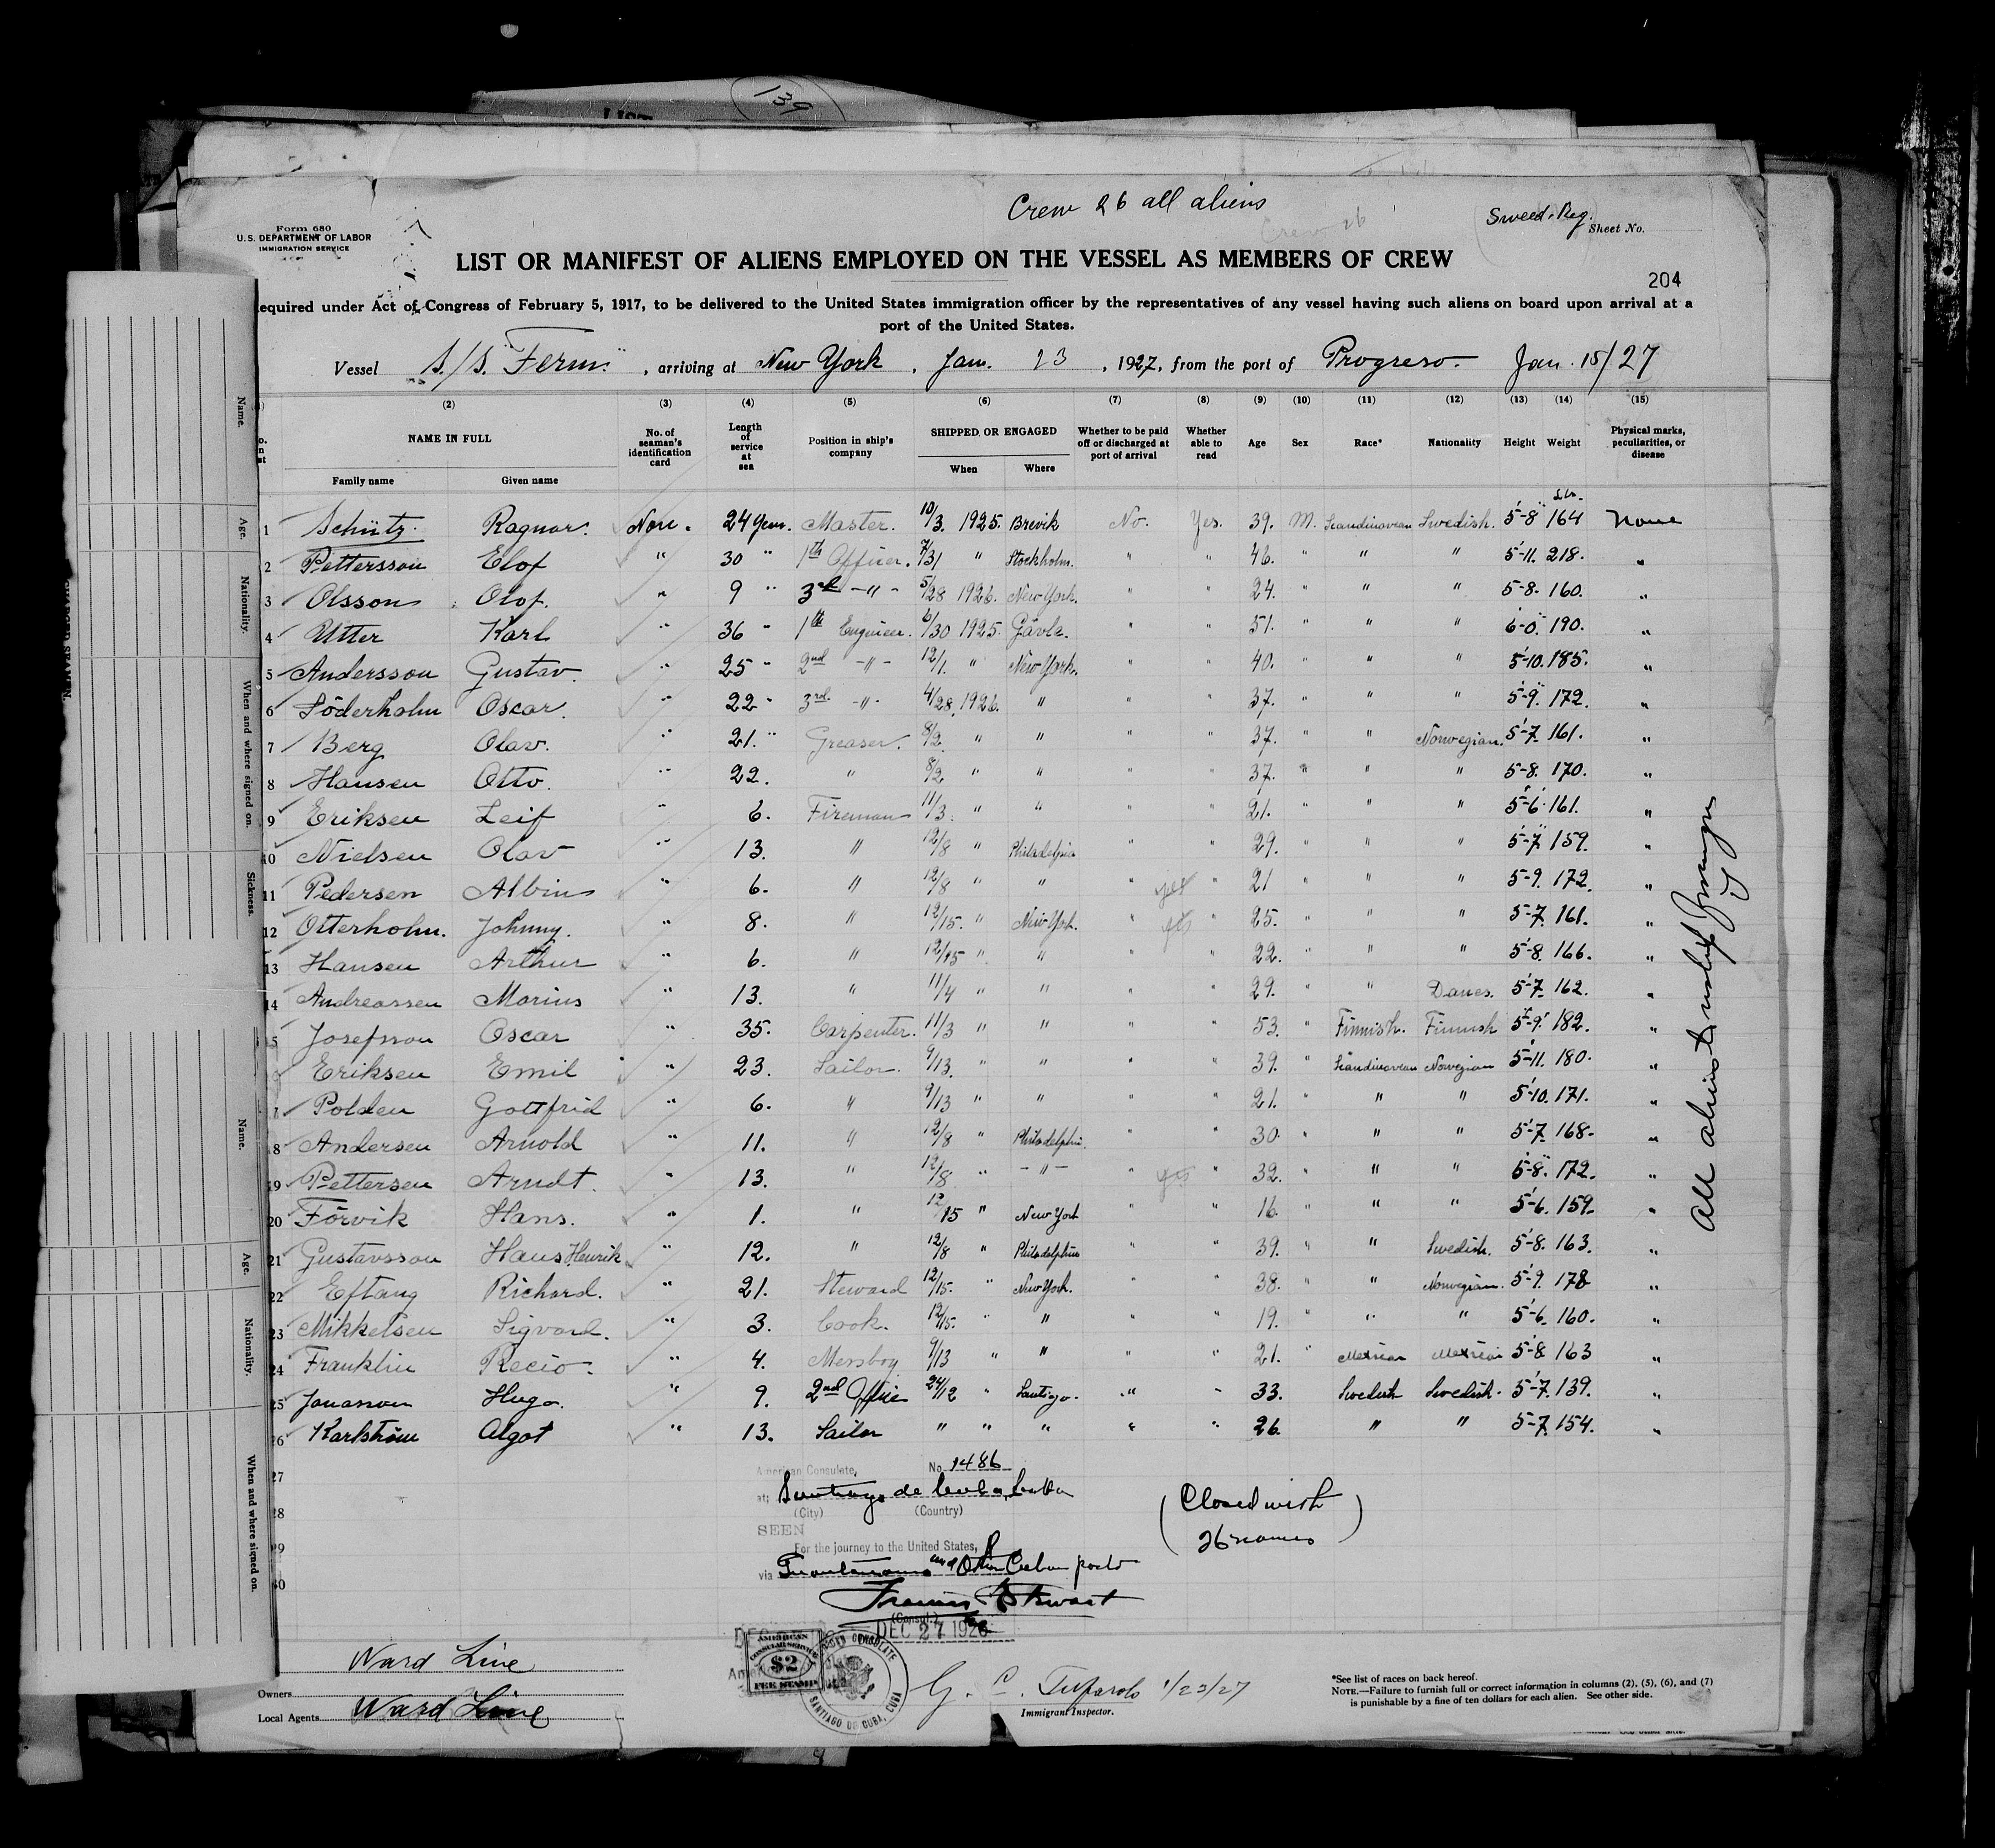 139
LIST
Crew 26 all aliens
Crew 26
Sweed. Reg.
Sheet No.
Form 680
U.S. DEPARTMENT OF LABOR
IMMIGRATION SERVICE
LIST OR MANIFEST OF ALIENS EMPLOYED ON THE VESSEL AS MEMBERS OF CREW
204
equired under Act of Congress of February 5, 1917, to be delivered to the United States immigration officer by the representatives of any vessel having such aliens on board upon arrival at a
port of the United States.
Vessel S/S. "Ferm", arriving at New York, Jan. 23, 1927, from the port of Progreso. Jan. 15/27
(2) (3) (4) (5) (6) (7) (8) (9) (10) (11) (12) (13) (14) (15)
NAME IN FULL No. of seaman's identification card Length of service at sea Position in ship's company SHIPPED OR ENGAGED Whether to be paid off or discharged at port of arrival Whether able to read Age Sex Race* Nationality Height Weight Physical marks, peculiarities, or disease
Family name Given name When Where
1 Schütz. Ragnar. Non. 24 years. Master. 10/3. 1925. Brevik No. Yes. 39. M. Scandinavian Swedish. 5-8 164 None
2 Pettersson Elof " 30 " 1th Officer. 7/31 " Stockholm. " " 46. " " " 5-11. 218. "
3 Olsson Olof. " 9 " 3rd -"- 5/28 1926. New York. " " 24. " " " 5-8. 160. "
4 Utter Karl " 36 " 1th Engineer. 6/30 1925. Gävle. " " 51. " " " 6-0. 190. "
5 Andersson Gustav. " 25 " 2nd -"- 12/1. " New York. " " 40. " " " 5-10. 185. "
6 Söderholm Oscar. " 22 " 3rd. -"- 4/28. 1926. " " " 37. " " " 5-9. 172. "
7 Berg Olav. " 21. " Greaser. 8/2. " " " " 37. " " Norwegian. 5-7. 161. "
8 Hansen Otto. " 22. " 8/2 " " " " 37. " " " 5-8. 170. "
9 Eriksen Leif " 6. Fireman 11/3. " " " " 21. " " " 5-6. 161. "
10 Nielsen Olav " 13. " 12/8 " Philadelpia " " 29. " " " 5-7. 159. "
11 Pedersen Albin " 6. " 12/8 " " " " 21 " " " 5-9. 172. "
12 Otterholm. Johnny. " 8. " 12/15. " New York. " " 25. " " " 5-7. 161. "
13 Hansen Arthur " 6. " 12/15 " " " " 22. " " " 5-8. 166. "
14 Andreassen Marius " 13. " 11/4 " " " " 29. " " Danes. 5-7. 162. "
5 Josefsson Oscar " 35. Carpenter. 11/3 " " " " 53. " Finnish. Finnish 5-9. 182. "
Eriksen Emil " 23. Sailor. 9/13. " " " " 39. " Scandinavian Norwegian 5-11. 180. "
7 Polden Gottfrid " 6. " 9/13 " " " " 21. " " " 5-10. 171. "
8 Andersen Arnold " 11. " 12/8 " Philadelphia " " 30. " " " 5-7. 168. "
19 Pettersen Arndt. " 13. " 12/8 " -"- " " 32. " " " 5-8. 172. "
20 Förvik Hans. " 1. " 12/15 " New York " " 16. " " " 5-6. 159. "
21 Gustavsson Hans Henrik. " 12. " 12/8 " Philadelphia " " 39. " " Swedish. 5-8. 163. "
22 Eftang Richard. " 21. Steward 12/15. " New York. " " 38. " " Norwegian. 5-9. 178 "
23 Mikkelsen Sigvard. " 3. Cook. 12/15. " " " " 19. " " " 5-6. 160. "
24 Franklin Recio. " 4. Messboy 9/13 " " " " 21. " Mexican Mexican 5-8 163 "
25 Jonasson Hugo. " 9. 2nd Officer 24/12 " Santiago. " " 33. Swedish Swedish. 5-7. 139. "
26 Karlström Algot " 13. Sailor " " " " " 26. " " 5-7. 154. "
27
28
29
30
American Consulate, No. 1486
at: Santiago de Cuba, Cuba
(City) (Country)
SEEN
For the journey to the United States,
via Guantanamo and Other Cuban ports
Francis R Stewart
(Consul.)
DEC 27 1926
(Closed with
26 names)
AMERICAN CONSULAR SERVICE $2 FEE STAMP
SANTIAGO DE CUBA, CUBA
Ward Line
Owners
Local Agents Ward Line
1/23/27
Immigrant Inspector.
*See list of races on back hereof.
NOTE.—Failure to furnish full or correct information in columns (2), (5), (6), and (7)
is punishable by a fine of ten dollars for each alien. See other side.
Name.
Age.
Nationality.
When and where signed on.
Sickness.
Name.
Age.
Nationality.
When and where signed on.